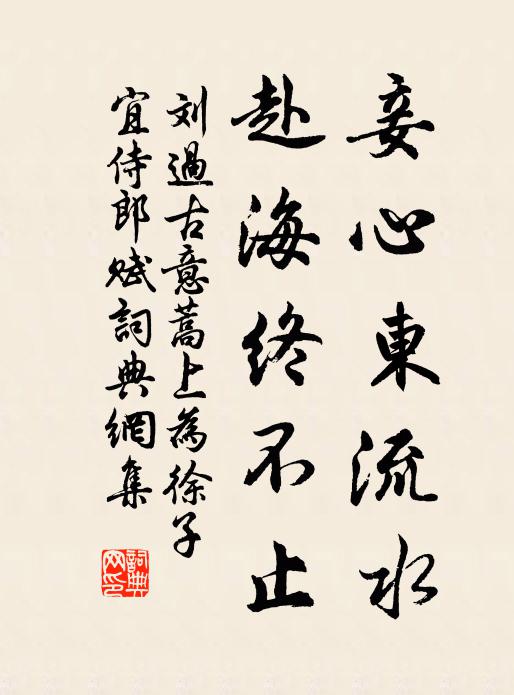 妾心東流水
赴海終不止
刘過古意蒿上為徐子
宜侍郎賦詞典網集
詞典
网印